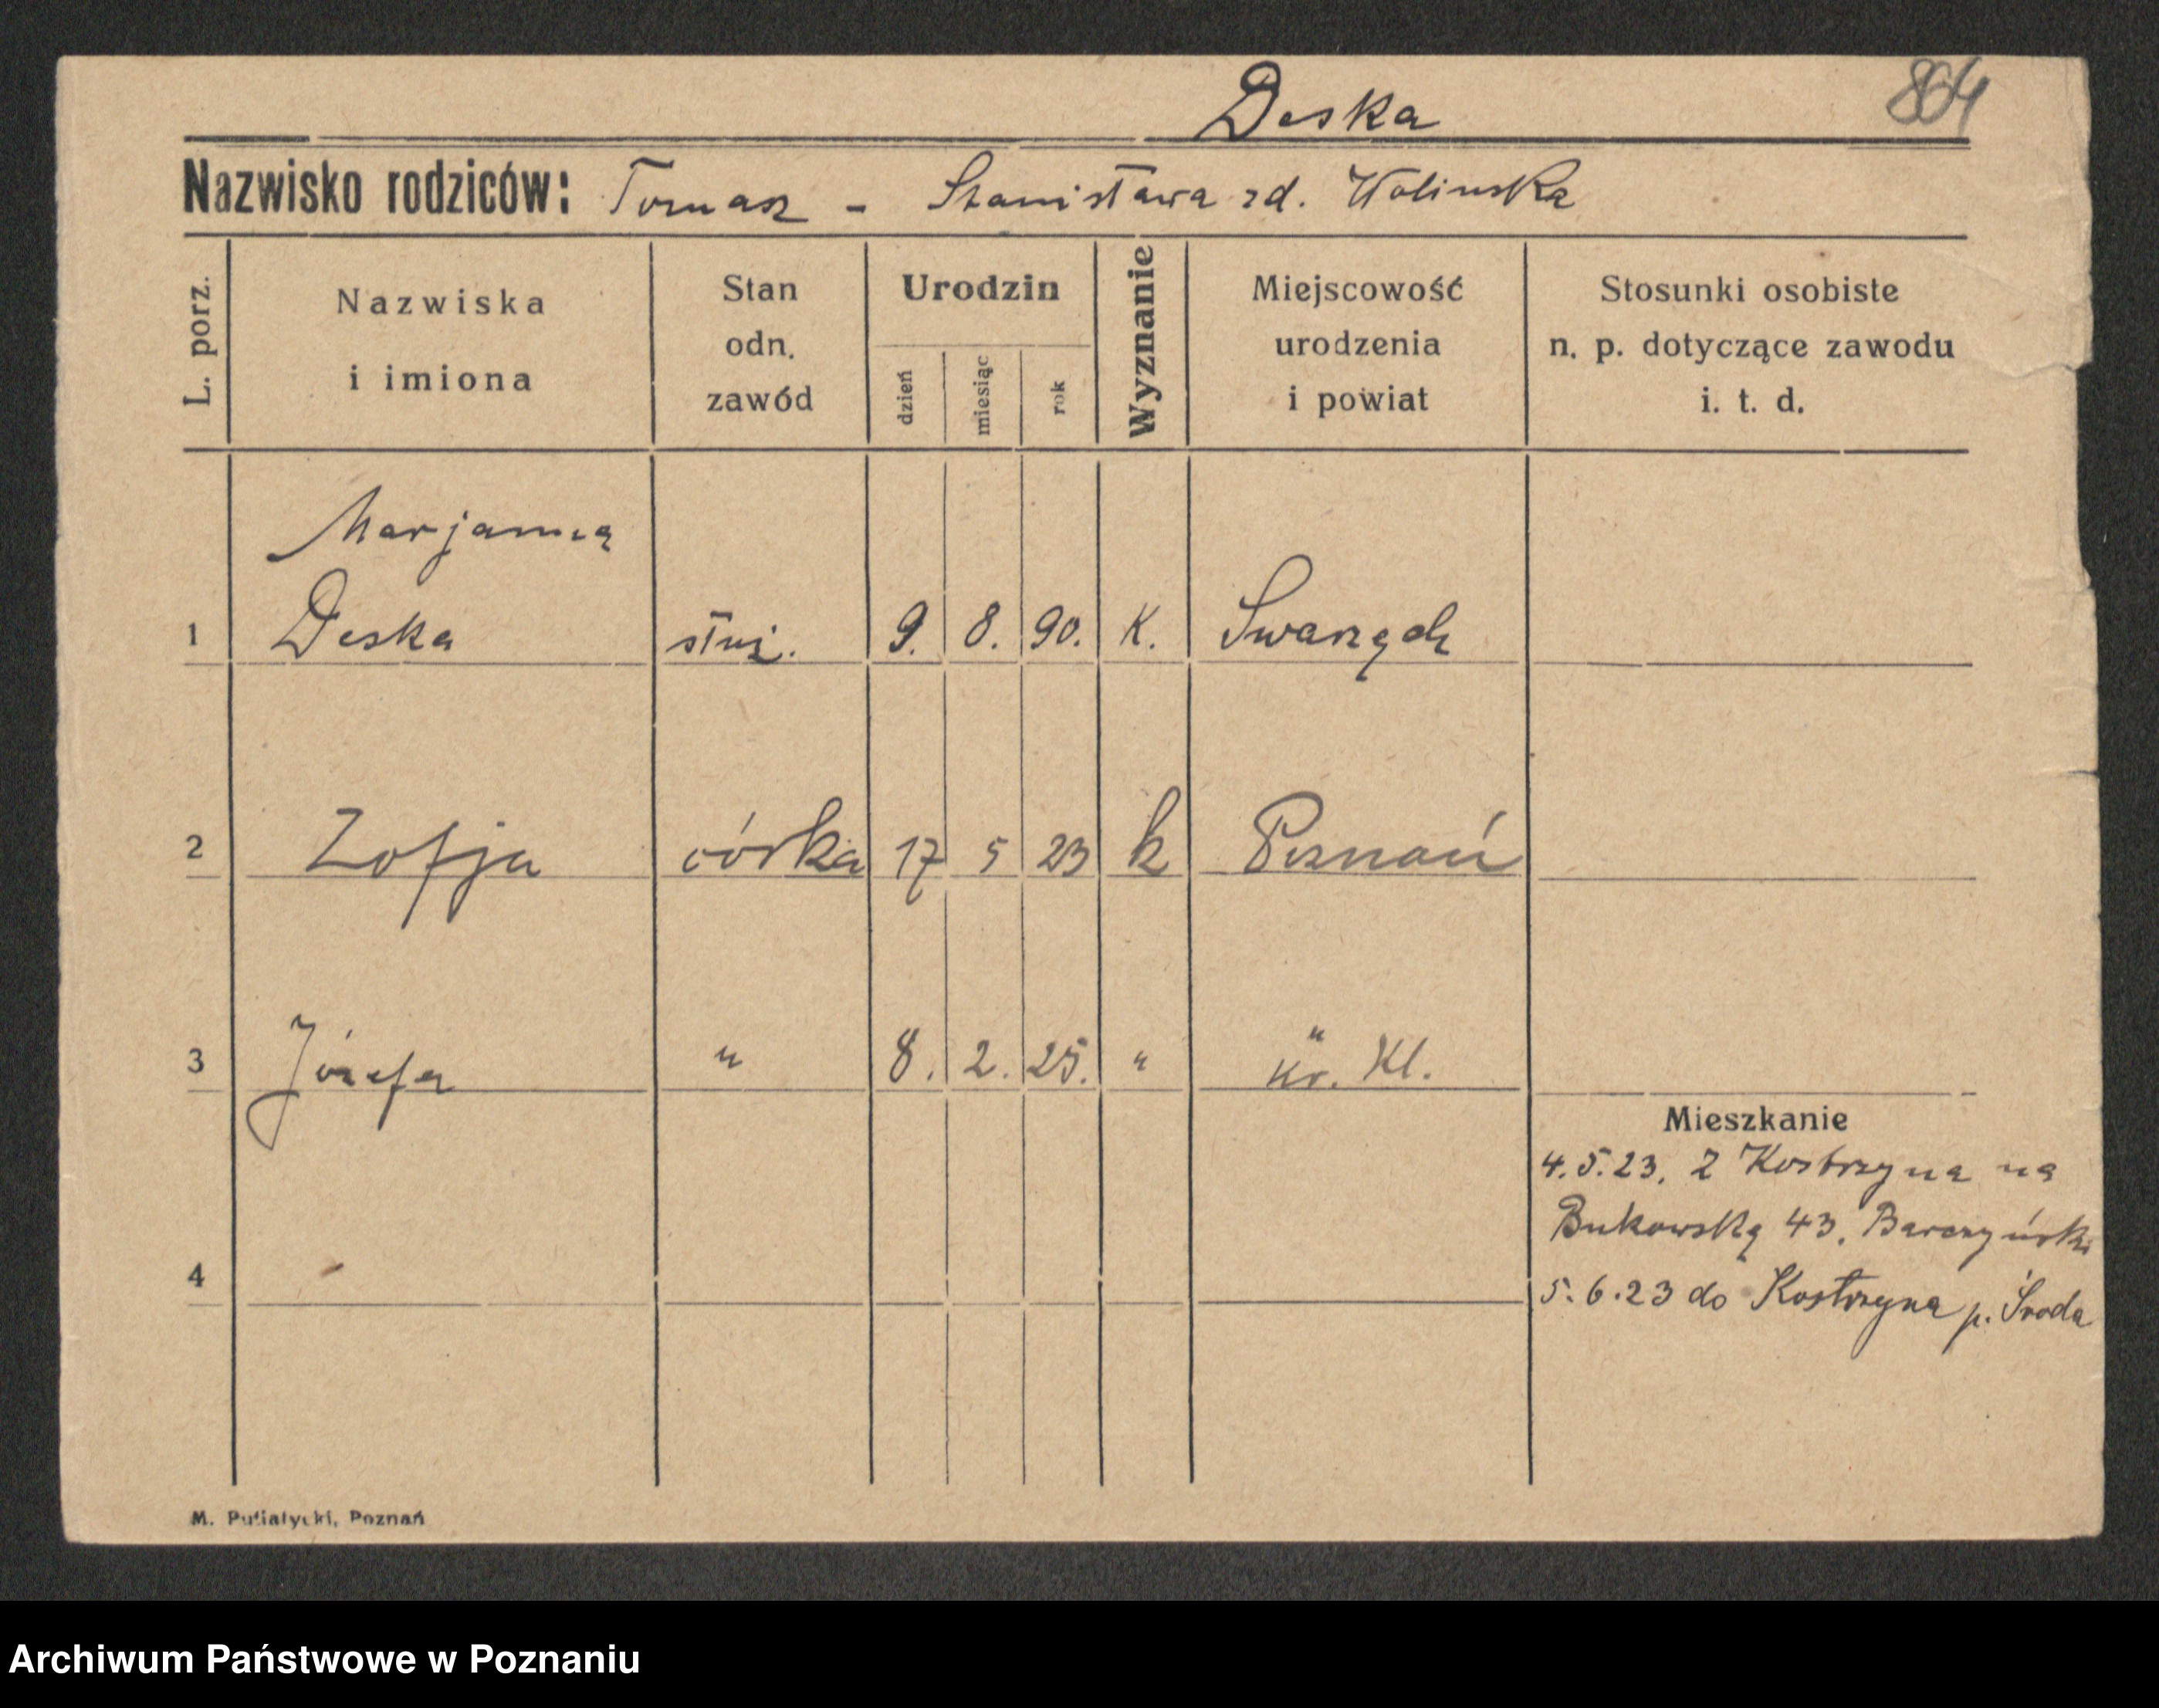 Deska 864
Nazwisko rodziców: Tomasz - Stanisława zd. Wolinska
L. porz.
Nazwiska
i imiona
Stan
odn.
zawód
Urodzin
dzień
miesiąc
rok
Wyznanie
Miejscowość
urodzenia
i powiat
Stosunki osobiste
n. p. dotyczące zawodu
i. t. d.
Marjanna
1 Deska służ. 9. 8. 90. K. Swarzędz
2 Zofja córka 17 5 23 k Poznań
3 Józefa " 8. 2. 25. " "
Kr. Kl.
Mieszkanie
4.5.23. z Kostrzyna na
Bukowską 43, Barczyński
4
5.6.23 do Kostrzyna p. Środa
M. Putiatycki, Poznań
Archiwum Państwowe w Poznaniu